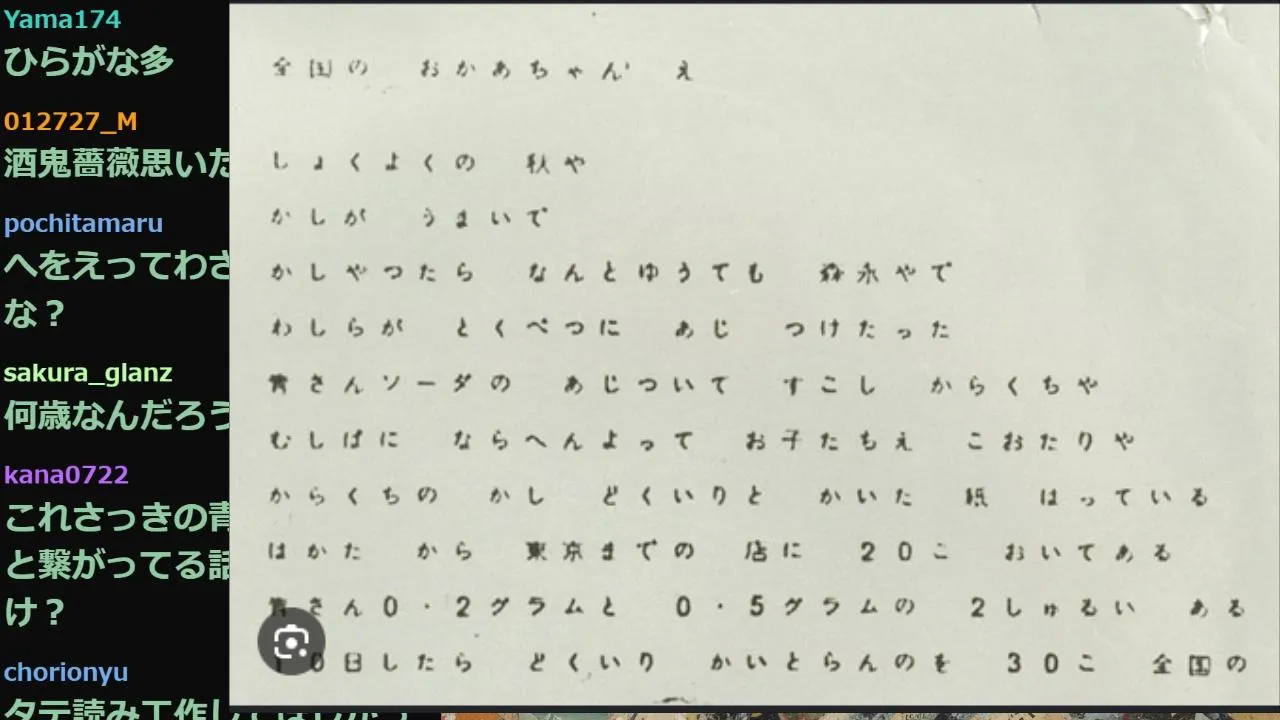 Yama174
ひらがな多
012727_M
酒鬼薔薇思いだ
pochitamaru
へをえってわざ
な？
sakura_glanz
何歳なんだろう
kana0722
これさっきの青
と繋がってる話
け？
chorionyu
タテ読み工作し
全国の おかあちゃん え
しょくよくの 秋や
かしが うまいで
かしやつたら なんとゆうても 森永やで
わしらが とくべつに あじ つけたった
青さんソーダの あじついて すこし からくちや
むしばに ならへんよって お子たちえ こおたりや
からくちの かし どくいりと かいた 紙 はっている
はかた から 東京までの 店に 20こ おいてある
青さん0・2グラムと 0・5グラムの 2しゅるい ある
10日したら どくいり かいとらんのを 30こ 全国の